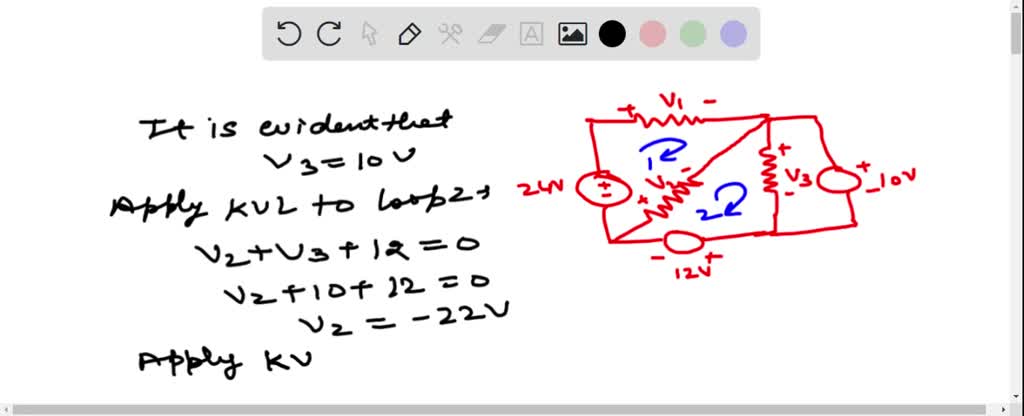 It is evident that
V3 = 10V
Apply KVL to loop 2,
V2 + V3 + 12 = 0
V2 + 10 + 12 = 0
V2 = -22V
Apply KV
+ V1 -
24V
+
-
1
+ V2 -
2
+
V3
-
+
-10V
- 12V +
A